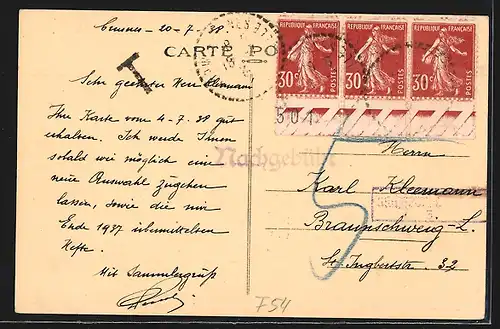 Cannes - 20-7-38
CARTE PO
REPUBLIQUE FRANÇAISE REPUBLIQUE FRANÇAISE REPUBLIQUE FRANÇAISE
30c POSTES 30c POSTES 30c POSTES
T
Sehr geehrter Herr Kleemann
Ihre Karte vom 4-7-38 gut
erhalten. Ich werde Ihnen
sobald wie möglich ein
neue Auswahl zugehen
lassen, sowie die mir
Ende 1937 übermittelten
Hefte.
Mit Sammlergruß
Nachgebühr
5
Herrn
Karl Kleemann
Braunschweig-L.
St. Ingbertstr. 32
F54